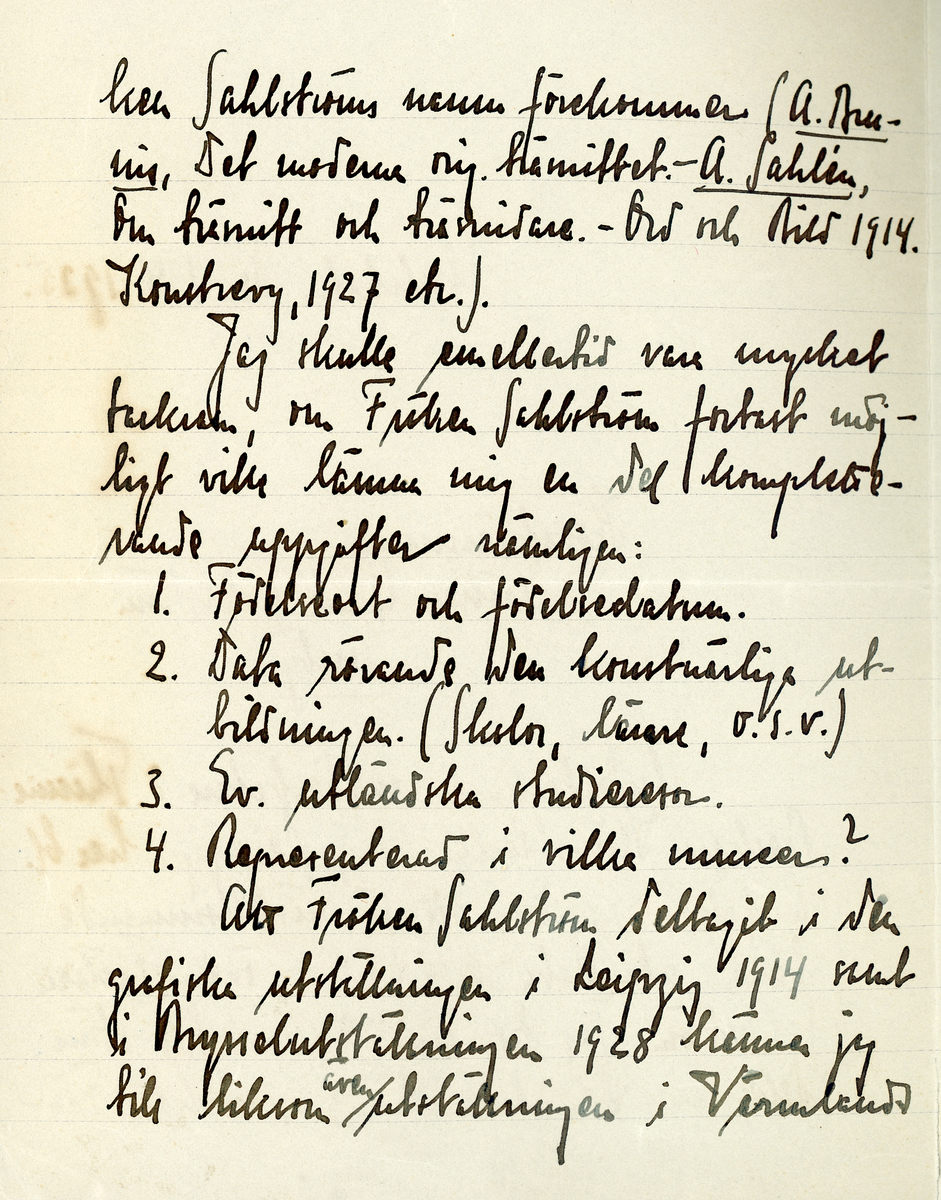 ken Sahlströms namn förekommer (A. Bru-
nius, Det moderna orig. träsnittet. – A. Sahlén,
Om träsnitt och träsnidare. – Ord och Bild 1914.
Konstrevy, 1927 etc.).
Jag skulle emellertid vara mycket
tacksam, om Fröken Sahlström fortast möj-
ligt ville lämna mig en del komplette-
rande uppgifter nämligen:
1. Födelseort och födelsedatum.
2. Data rörande den konstnärliga ut-
bildningen. (Skolor, lärare, o.s.v.)
3. Ev. utländska studieresor.
4. Representerad i vilka museer?
Att Fröken Sahlström deltagit i den
grafiska utställningen i Leipzig 1914 samt
i Brysselutställningen 1928 känner jag
till liksom även utställningen i Värmlands